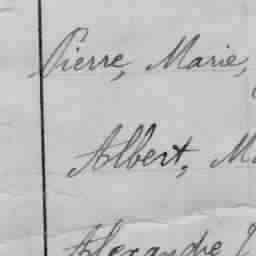 Pierre, Marie,
Albert, M
Alexandre